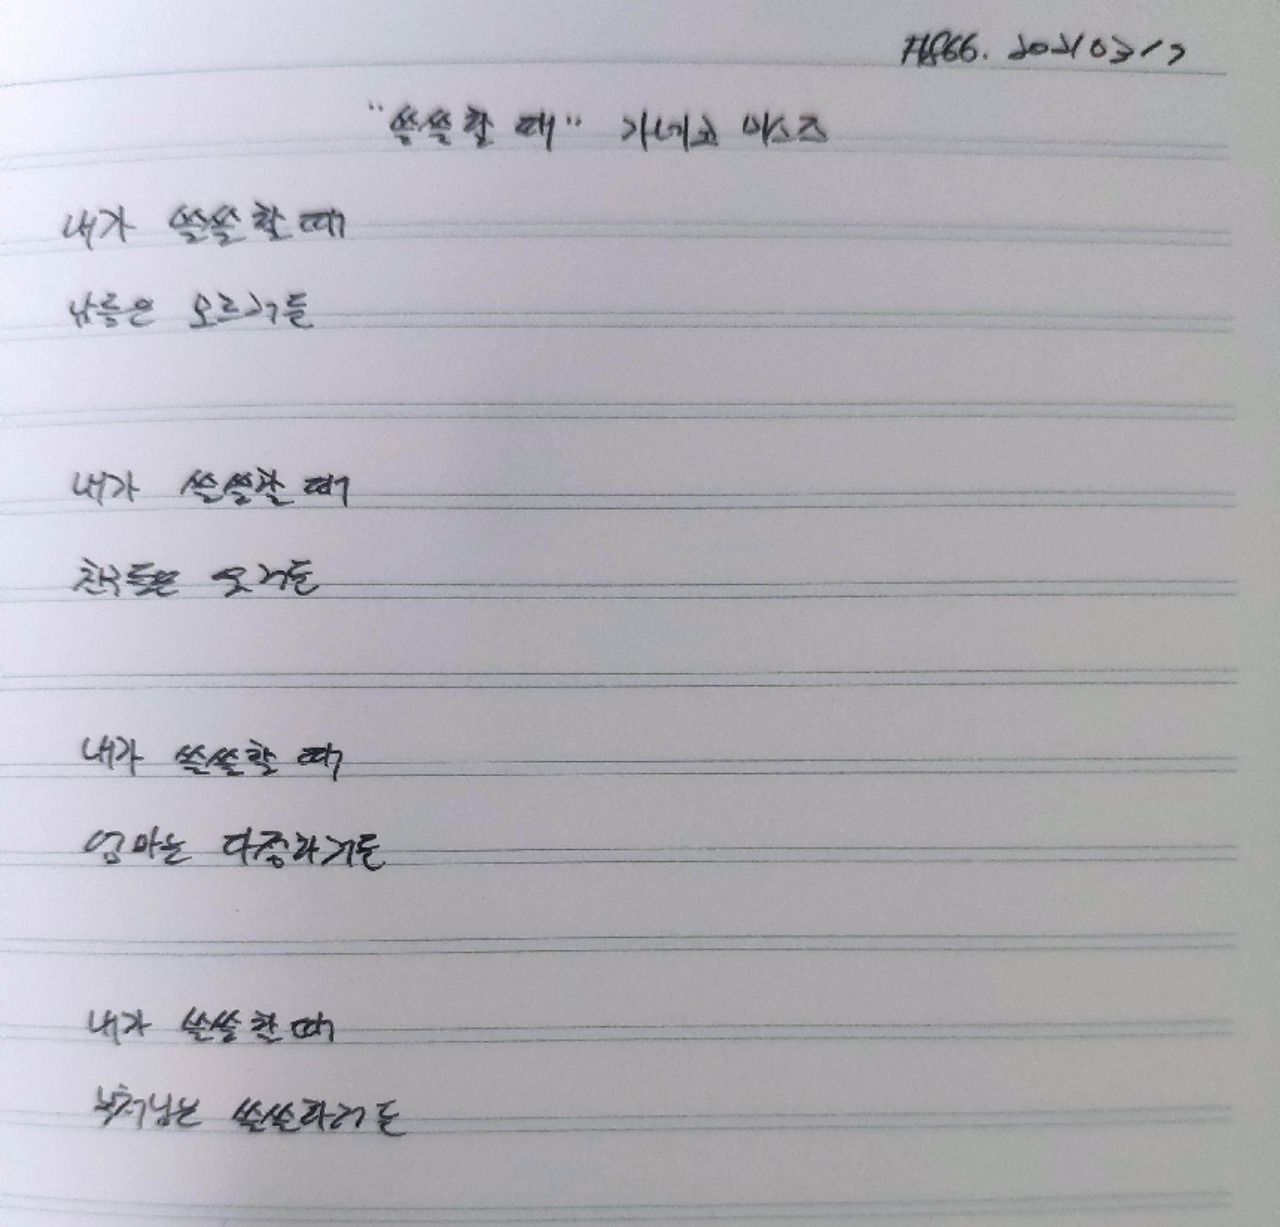 20210317
"쓸쓸할 때" 가네코 미스즈
내가 쓸쓸할 때
남들은 모르거든
내가 쓸쓸할 때
친구들은 웃거든
내가 쓸쓸할 때
엄마는 다정하거든
내가 쓸쓸할 때
부처님은 쓸쓸하거든